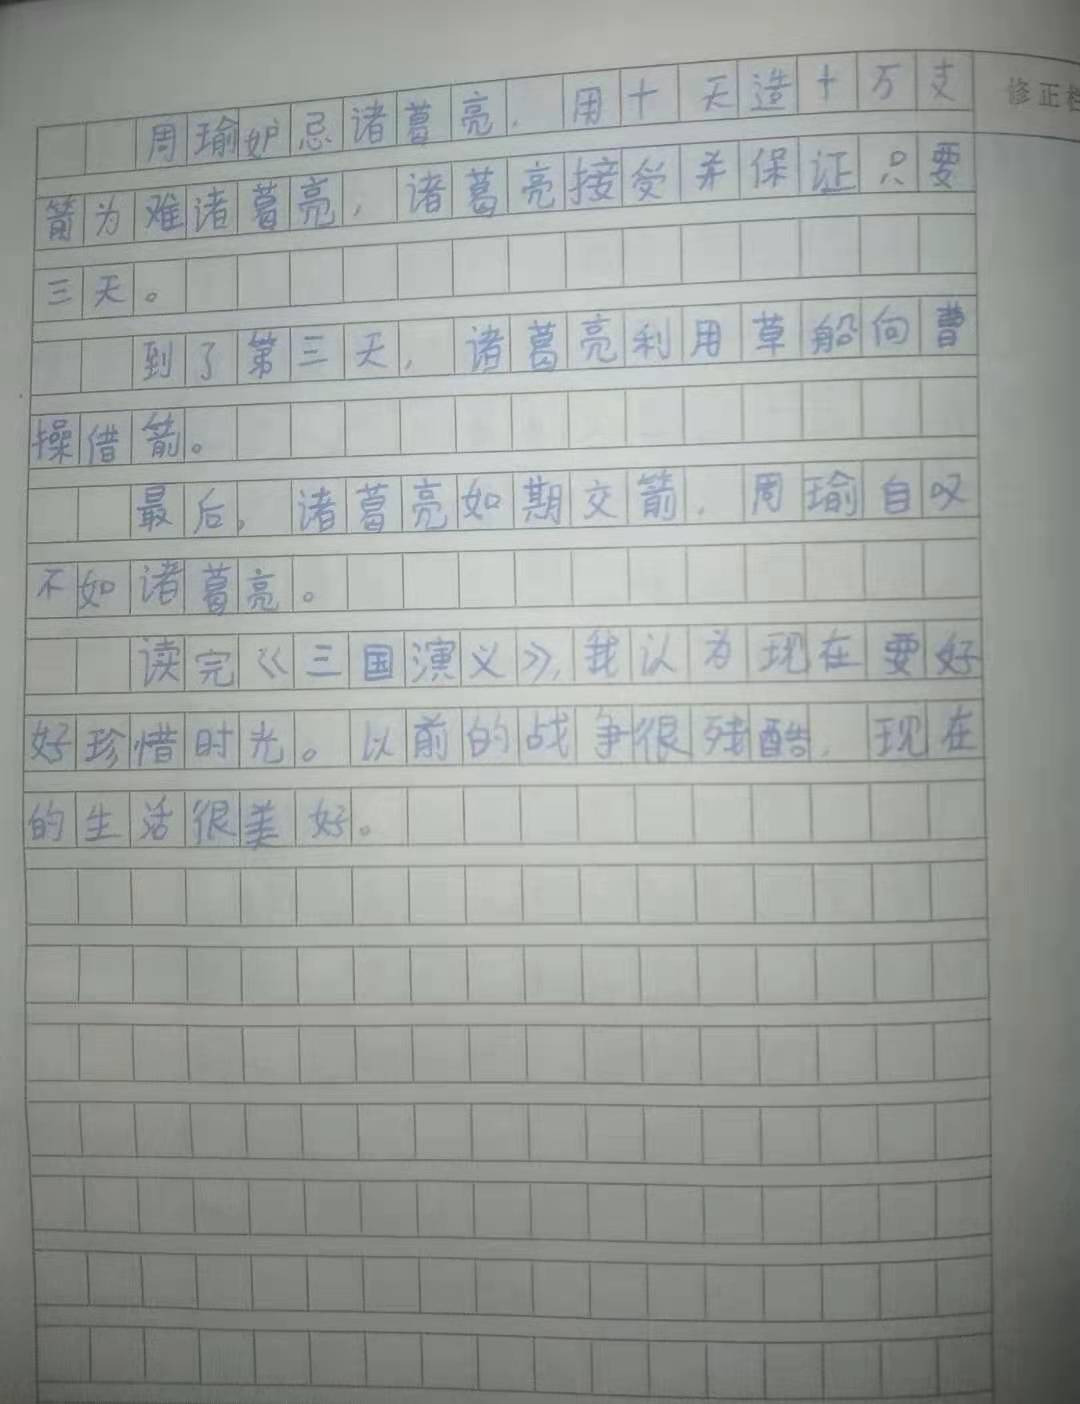 周瑜妒忌诸葛亮，用十天造十万支
箭为难诸葛亮，诸葛亮接受并保证只要
三天。
到了第三天，诸葛亮利用草船向曹
操借箭。
最后，诸葛亮如期交箭，周瑜自叹
不如诸葛亮。
读完《三国演义》，我认为现在要好
好珍惜时光。以前的战争很残酷，现在
的生活很美好。
修正栏